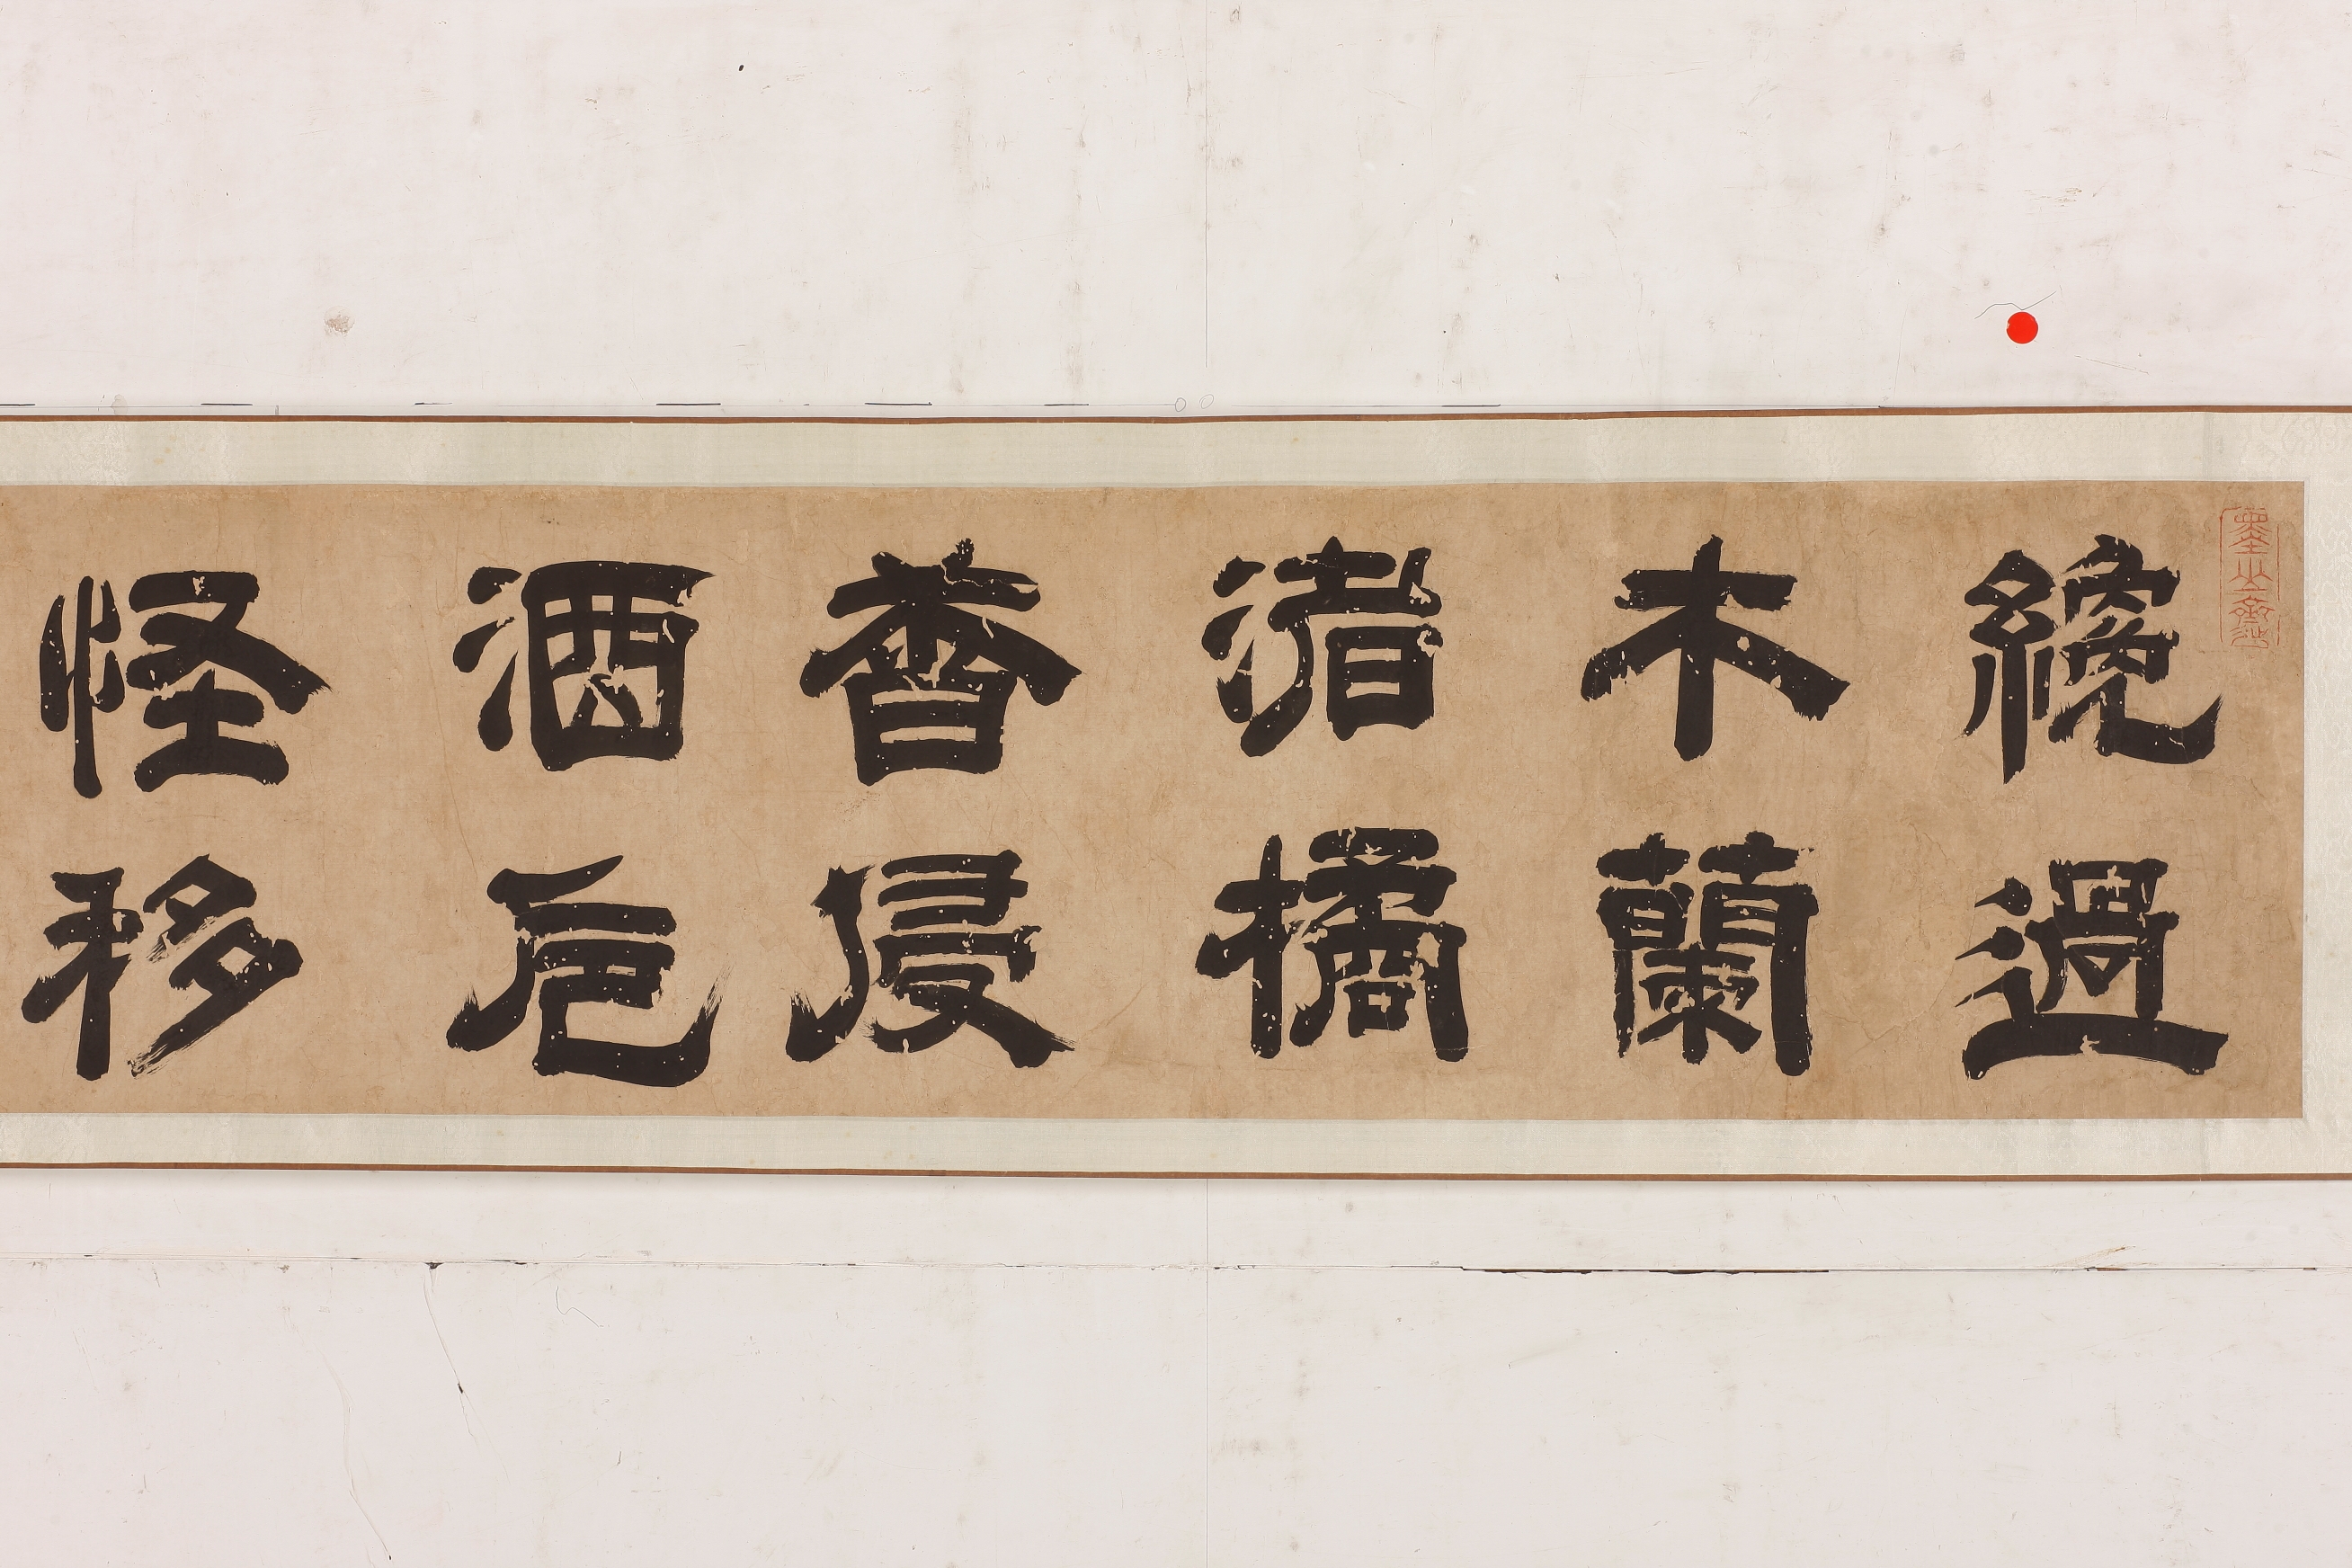 纔過
木蘭
渚橘
香侵
酒卮
怪移